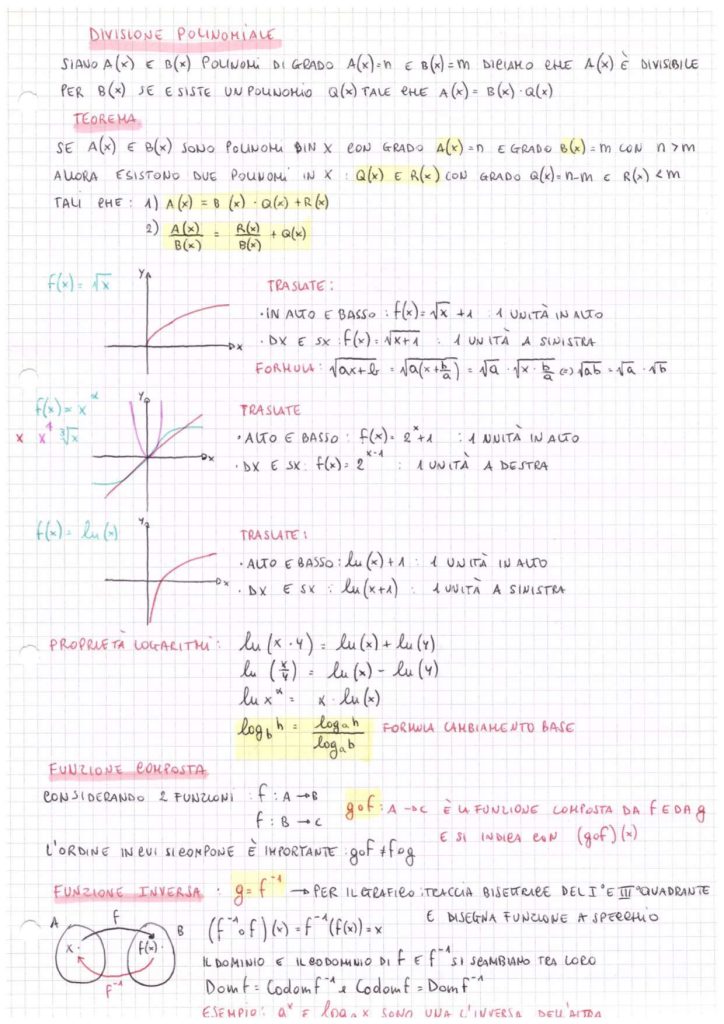 DIVISIONE POLINOMIALE
SIANO A(x) E B(x) POLINOMI DI GRADO A(x)=n E B(x)=m DICIAMO CHE A(x) È DIVISIBILE
PER B(x) SE ESISTE UN POLINOMIO Q(x) TALE CHE A(x) = B(x)·Q(x)
TEOREMA
SE A(x) E B(x) SONO POLINOMI IN X CON GRADO A(x)=n E GRADO B(x)=m CON n>m
ALLORA ESISTONO DUE POLINOMI IN X : Q(x) E R(x) CON GRADO Q(x)=n-m E R(x) < m
TALI CHE : 1) A(x) = B(x)·Q(x)+R(x)
2) A(x)/B(x) = R(x)/B(x) + Q(x)
f(x) = √x
y
x
TRASLATE :
· IN ALTO E BASSO : f(x)=√x +1 : 1 UNITÀ IN ALTO
· DX E SX : f(x)=√x+1 : 1 UNITÀ A SINISTRA
FORMULA : √ax+b = √a(x+b/a) = √a · √x·b/a (=) √ab = √a · √b
f(x) = x^α
x x⁴ ³√x
y
x
TRASLATE
· ALTO E BASSO : f(x)= 2^x+1 : 1 UNITÀ IN ALTO
· DX E SX : f(x)= 2^x-1 : 1 UNITÀ A DESTRA
f(x) = ln(x)
y
x
TRASLATE :
· ALTO E BASSO : ln(x)+1 : 1 UNITÀ IN ALTO
· DX E SX : ln(x+1) : 1 UNITÀ A SINISTRA
PROPRIETÀ LOGARITMI : ln(x·y) = ln(x)+ln(y)
ln(x/y) = ln(x) - ln(y)
ln x^α = x·ln(x)
log_b h = log_a h / log_a b FORMULA CAMBIAMENTO BASE
FUNZIONE COMPOSTA
CONSIDERANDO 2 FUNZIONI : f : A → B
f : B → C
g∘f : A → C È LA FUNZIONE COMPOSTA DA f E DA g
E SI INDICA CON (g∘f)(x)
L'ORDINE IN CUI SI COMPONE È IMPORTANTE : g∘f ≠ f∘g
FUNZIONE INVERSA : g=f⁻¹ → PER IL GRAFICO : TRACCIA BISETTRICE DEL I° E III° QUADRANTE
E DISEGNA FUNZIONE A SPECCHIO
A f B
x· f(x)·
f⁻¹
(f⁻¹∘f)(x) = f⁻¹(f(x)) = x
IL DOMINIO E IL CODOMINIO DI f E f⁻¹ SI SCAMBIANO TRA LORO
Dom f = Codom f⁻¹ e Codom f = Dom f⁻¹
ESEMPIO : a^x E log_a x SONO UNA L'INVERSA DELL'ALTRA